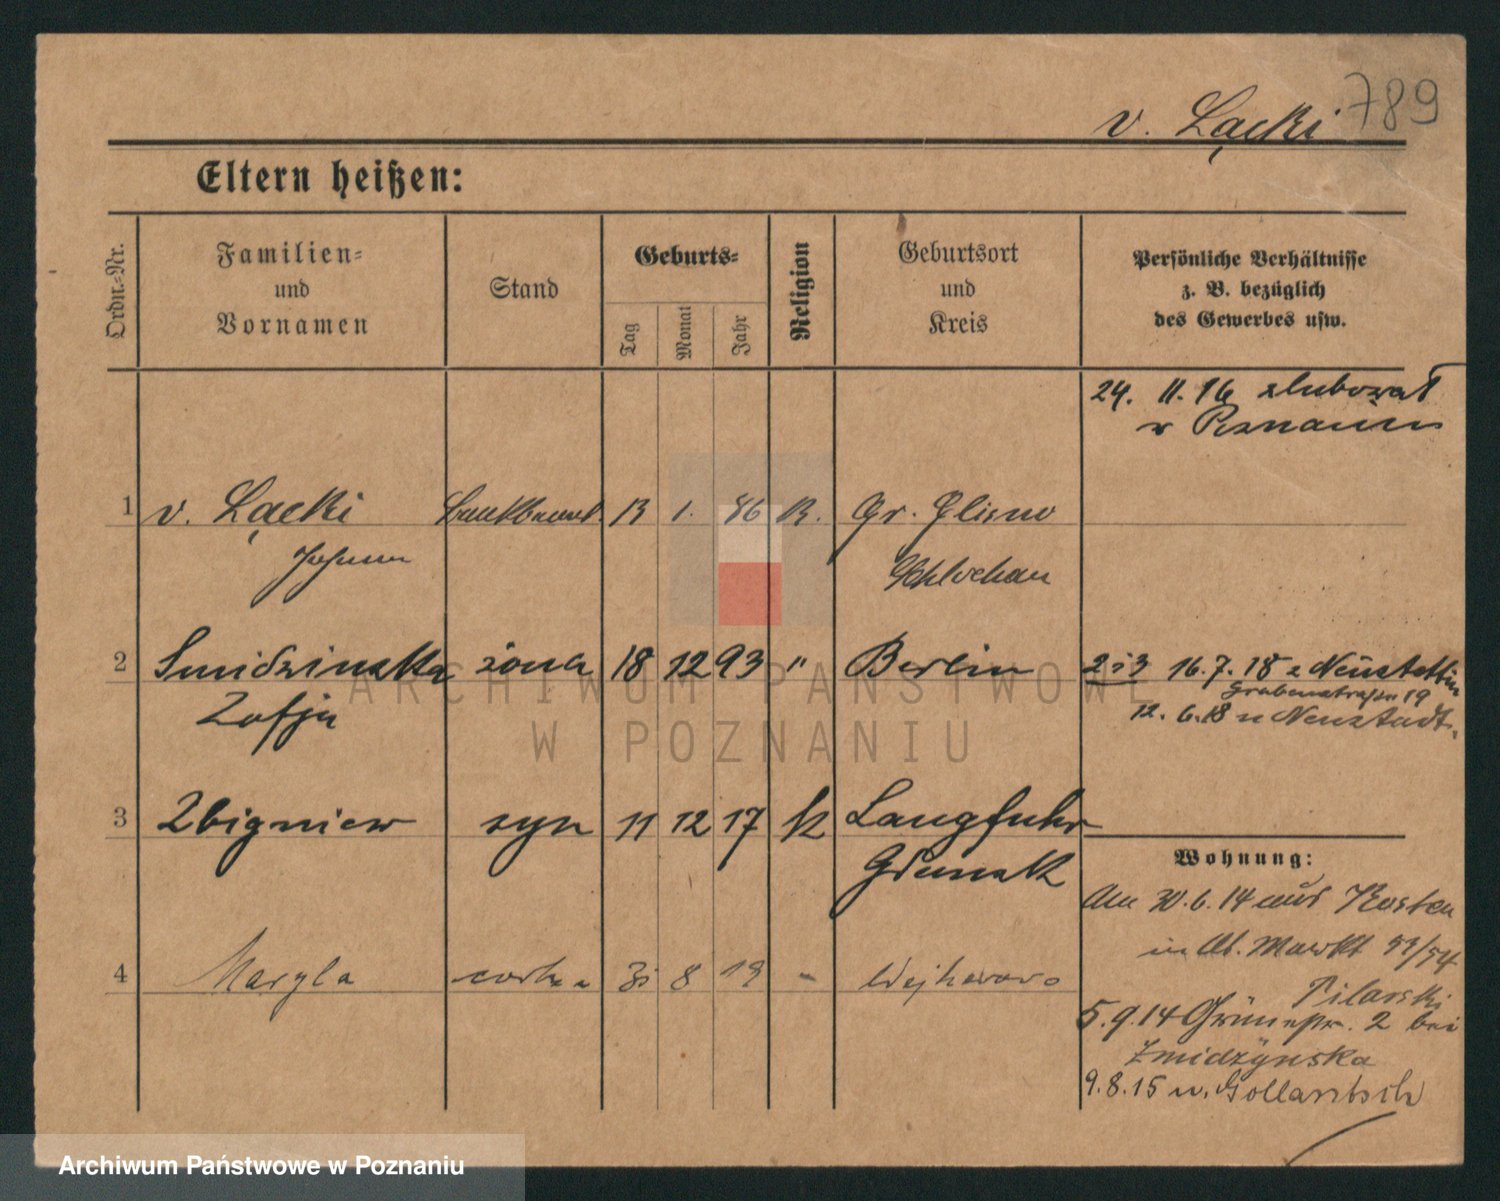 v. Łącki 789
Eltern heißen:
Ordn.-Nr.
Familien-
und
Vornamen
Stand
Geburts-
Tag
Monat
Jahr
Religion
Geburtsort
und
Kreis
Persönliche Verhältnisse
z. B. bezüglich
des Gewerbes usw.
24. 11. 16 zlubował
w Poznaniu
1 v. Łącki Bankbeamt. 13 1. 86 K. Gr. Glisno
Johann Schlochau
2 Smidzinska żona 18 12 93 " Berlin 2 i 3 16.7.18 z Neustettin
Grabenstraße 19
Zofja 12. 6. 18 n Neustadt.
3 Zbigniew syn 11 12 17 k Langfuhr
Gdansk
Wohnung:
Am 30.6.14 aus Kosten
in Alt. Markt 53/54
Pilarski
4 Maryla corka 31 8 19 - Wejherowo
5.9.14 Grünestr. 2 bei
Zmidzynska
9.8.15 n. Gollantsch
ARCHIWUM PAŃSTWOWE
W POZNANIU
Archiwum Państwowe w Poznaniu